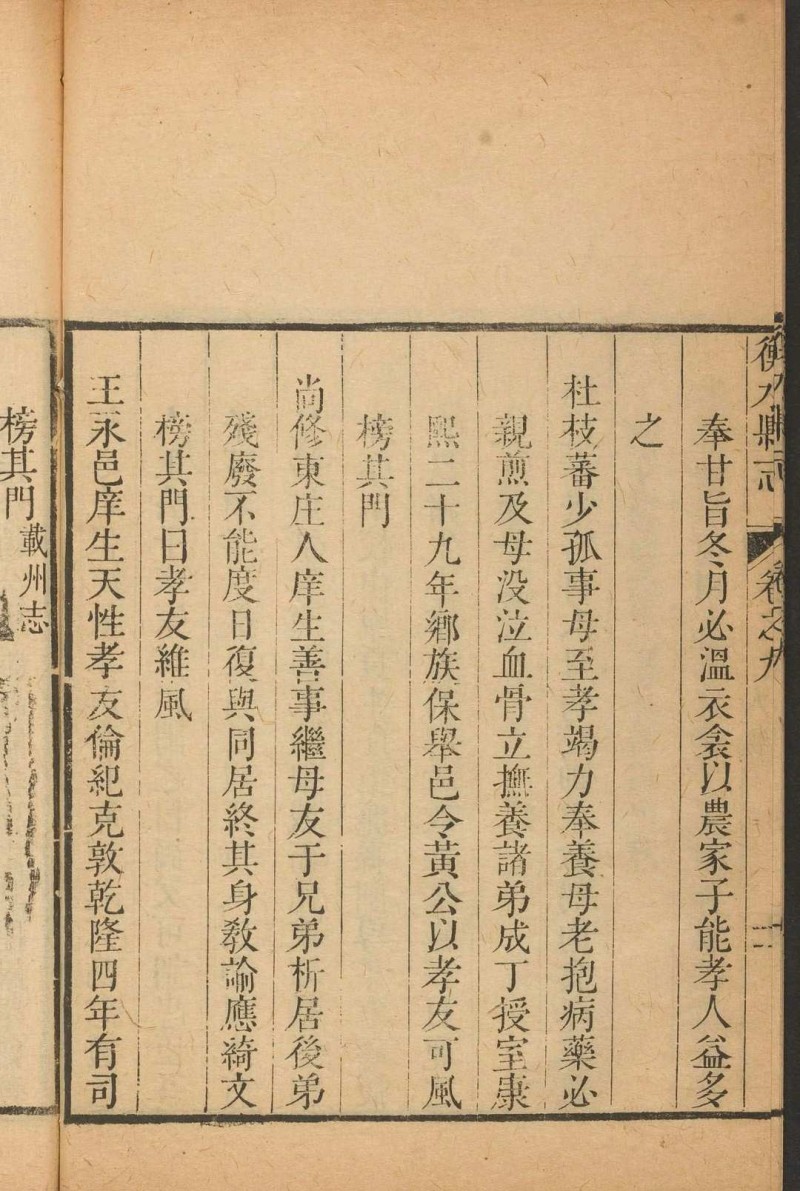 衡水縣志 卷之九
奉甘旨冬月必溫衣衾以農家子能孝人益多
之
杜枝蕃少孤事母至孝竭力奉養母老抱病藥必
親煎及母没泣血骨立撫養諸弟成丁授室康
熙二十九年鄉族保舉邑令黃公以孝友可風
榜其門
尚修東庄人庠生善事繼母友于兄弟析居後弟
殘廢不能度日復與同居終其身教諭應綺文
榜其門曰孝友維風
王永邑庠生天性孝友倫紀克敦乾隆四年有司
榜其門載州志